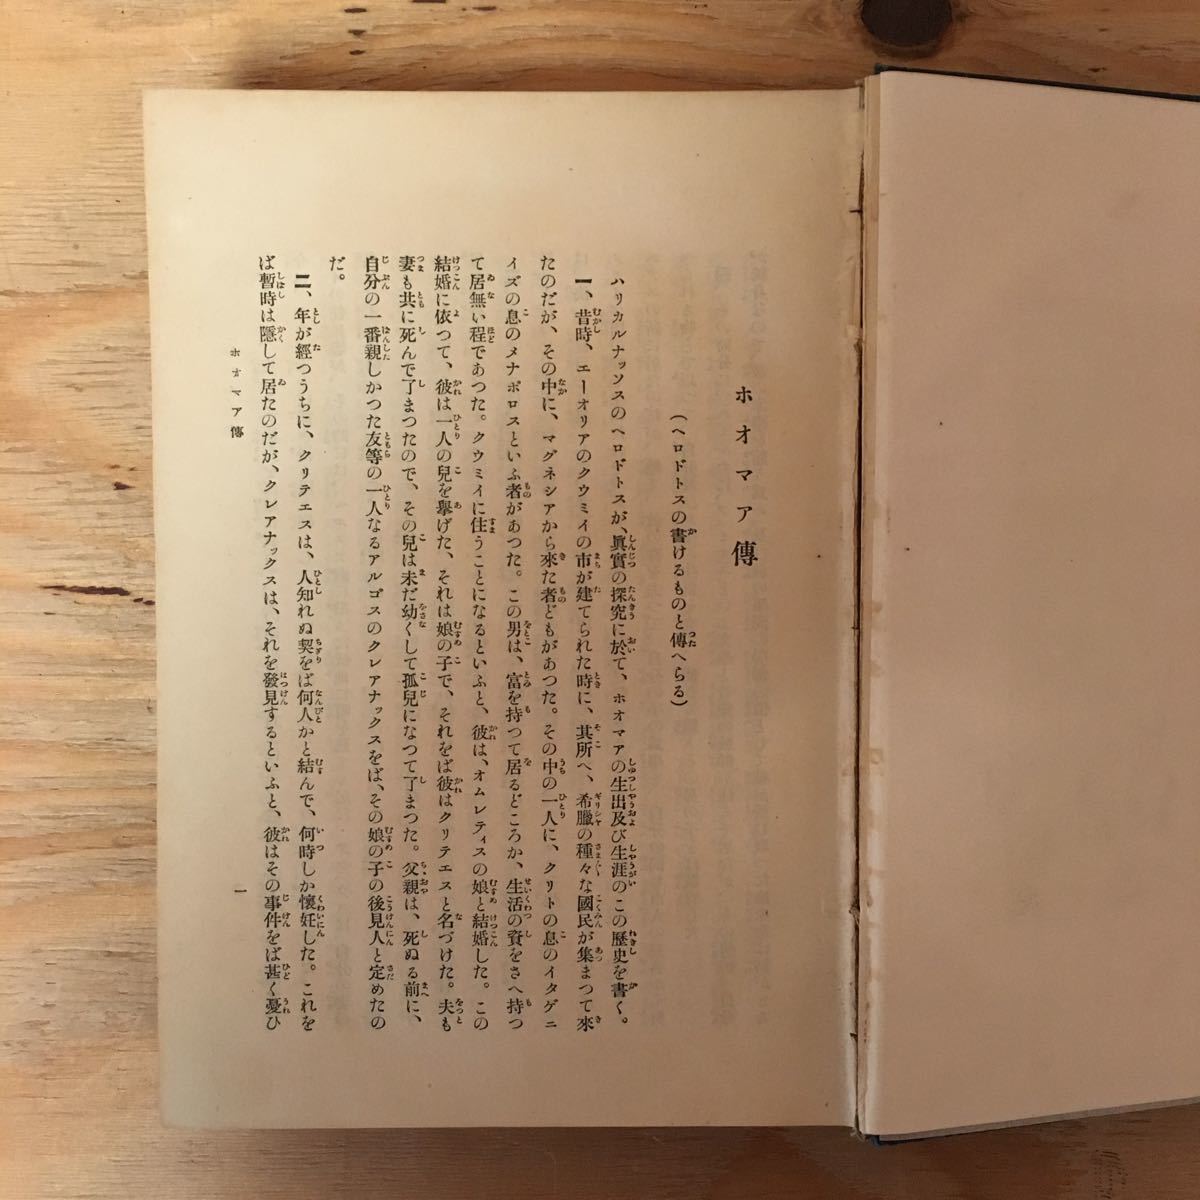 ホオマア傳
(ヘロドトスの書けるものと傳へらる)
ハリカルナッソスのヘロドトスが、眞實の探究に於て、ホオマアの生出及び生涯のこの歷史を書く。
一、昔時、エーオリアのクウミイの市が建てられた時に、其所へ、希臘の種々な國民が集まつて來
たのだが、その中に、マグネシアから來た者どもがあつた。その中の一人に、クリトの息のイタゲニ
イズの息のメナポロスといふ者があつた。この男は、富を持つて居るどころか、生活の資をさへ持つ
て居無い程であつた。クウミイに住うことになるといふと、彼は、オムレティスの娘と結婚した。この
結婚に依つて、彼は一人の兒を擧げた、それは娘の子で、それをば彼はクリテエスと名づけた。夫も
妻も共に死んで了まつたので、その兒は未だ幼くして孤兒になつて了まつた。父親は、死ぬる前に、
自分の一番親しかつた友等の一人なるアルゴスのクレアナックスをば、その娘の子の後見人と定めたの
だ。
二、年が經つうちに、クリテエスは、人知れぬ契をば何人かと結んで、何時しか懷妊した。これを
ば暫時は隱して居たのだが、クレアナックスは、それを發見するといふと、彼はその事件をば甚く憂ひ
ホオマア傳
一